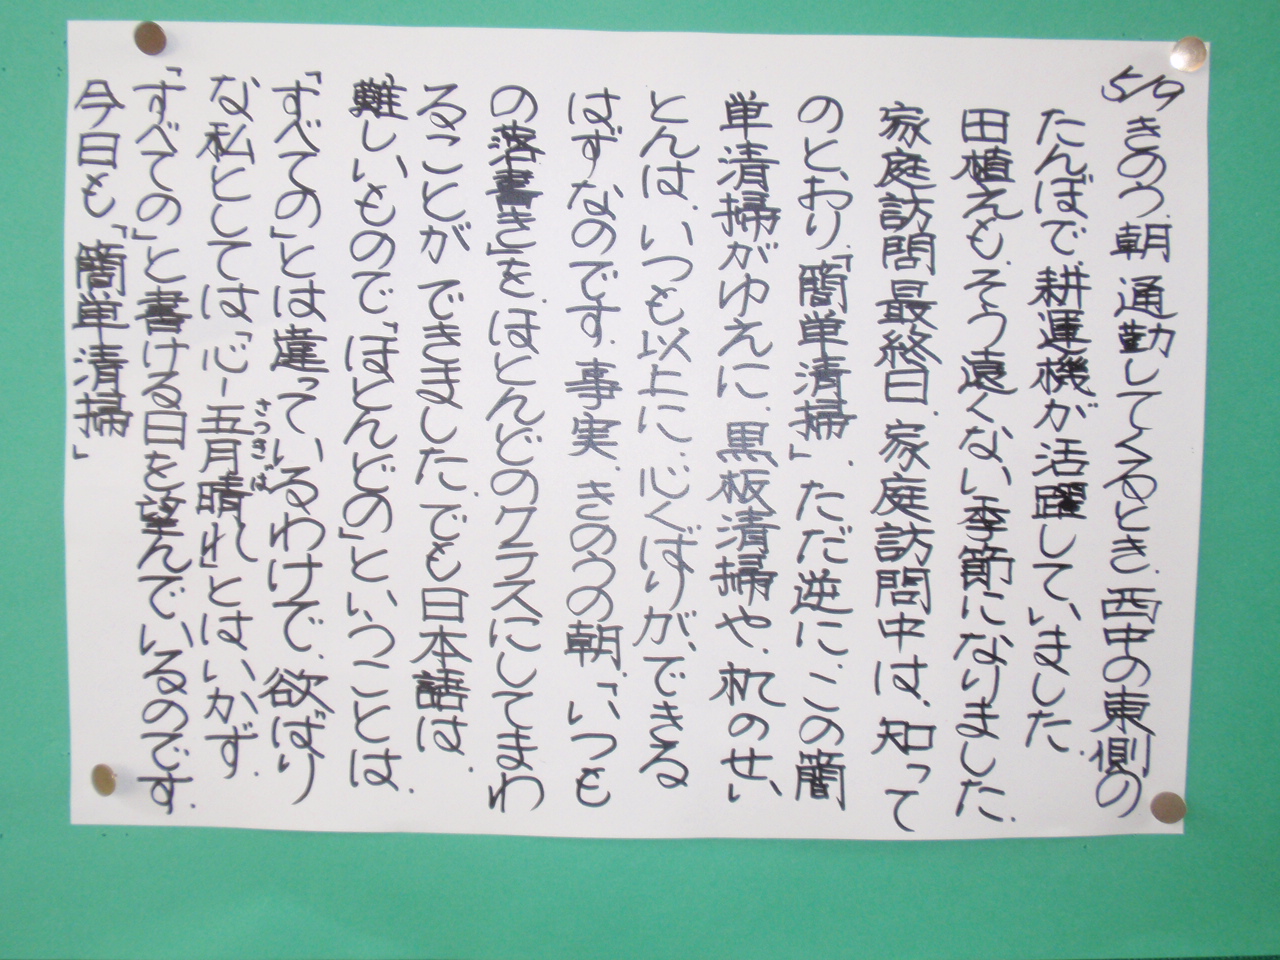 5/9 きのう、朝通勤してくるとき、西中の東側の
たんぼで、耕運機が活躍していました。
田植えも、そう遠くない季節になりました。
家庭訪問最終日、家庭訪問中は、知って
のとおり、「簡単清掃」、ただ逆に、この簡
単清掃がゆえに、黒板清掃や、机のせい
とんは、いつも以上に、心くばりが、できる
はずなのです。事実、きのうの朝、「いつも
の落書き」を、ほとんどのクラスにしてまわ
ることができました。でも日本語は、
難しいもので、「ほとんどの」ということは、
「すべての」とは違っているわけで、欲ばり
な私としては「心-五月晴れ」とはいかず、
さつきば
「すべての」と書ける日を望んでいるのです。
今日も「簡単清掃」